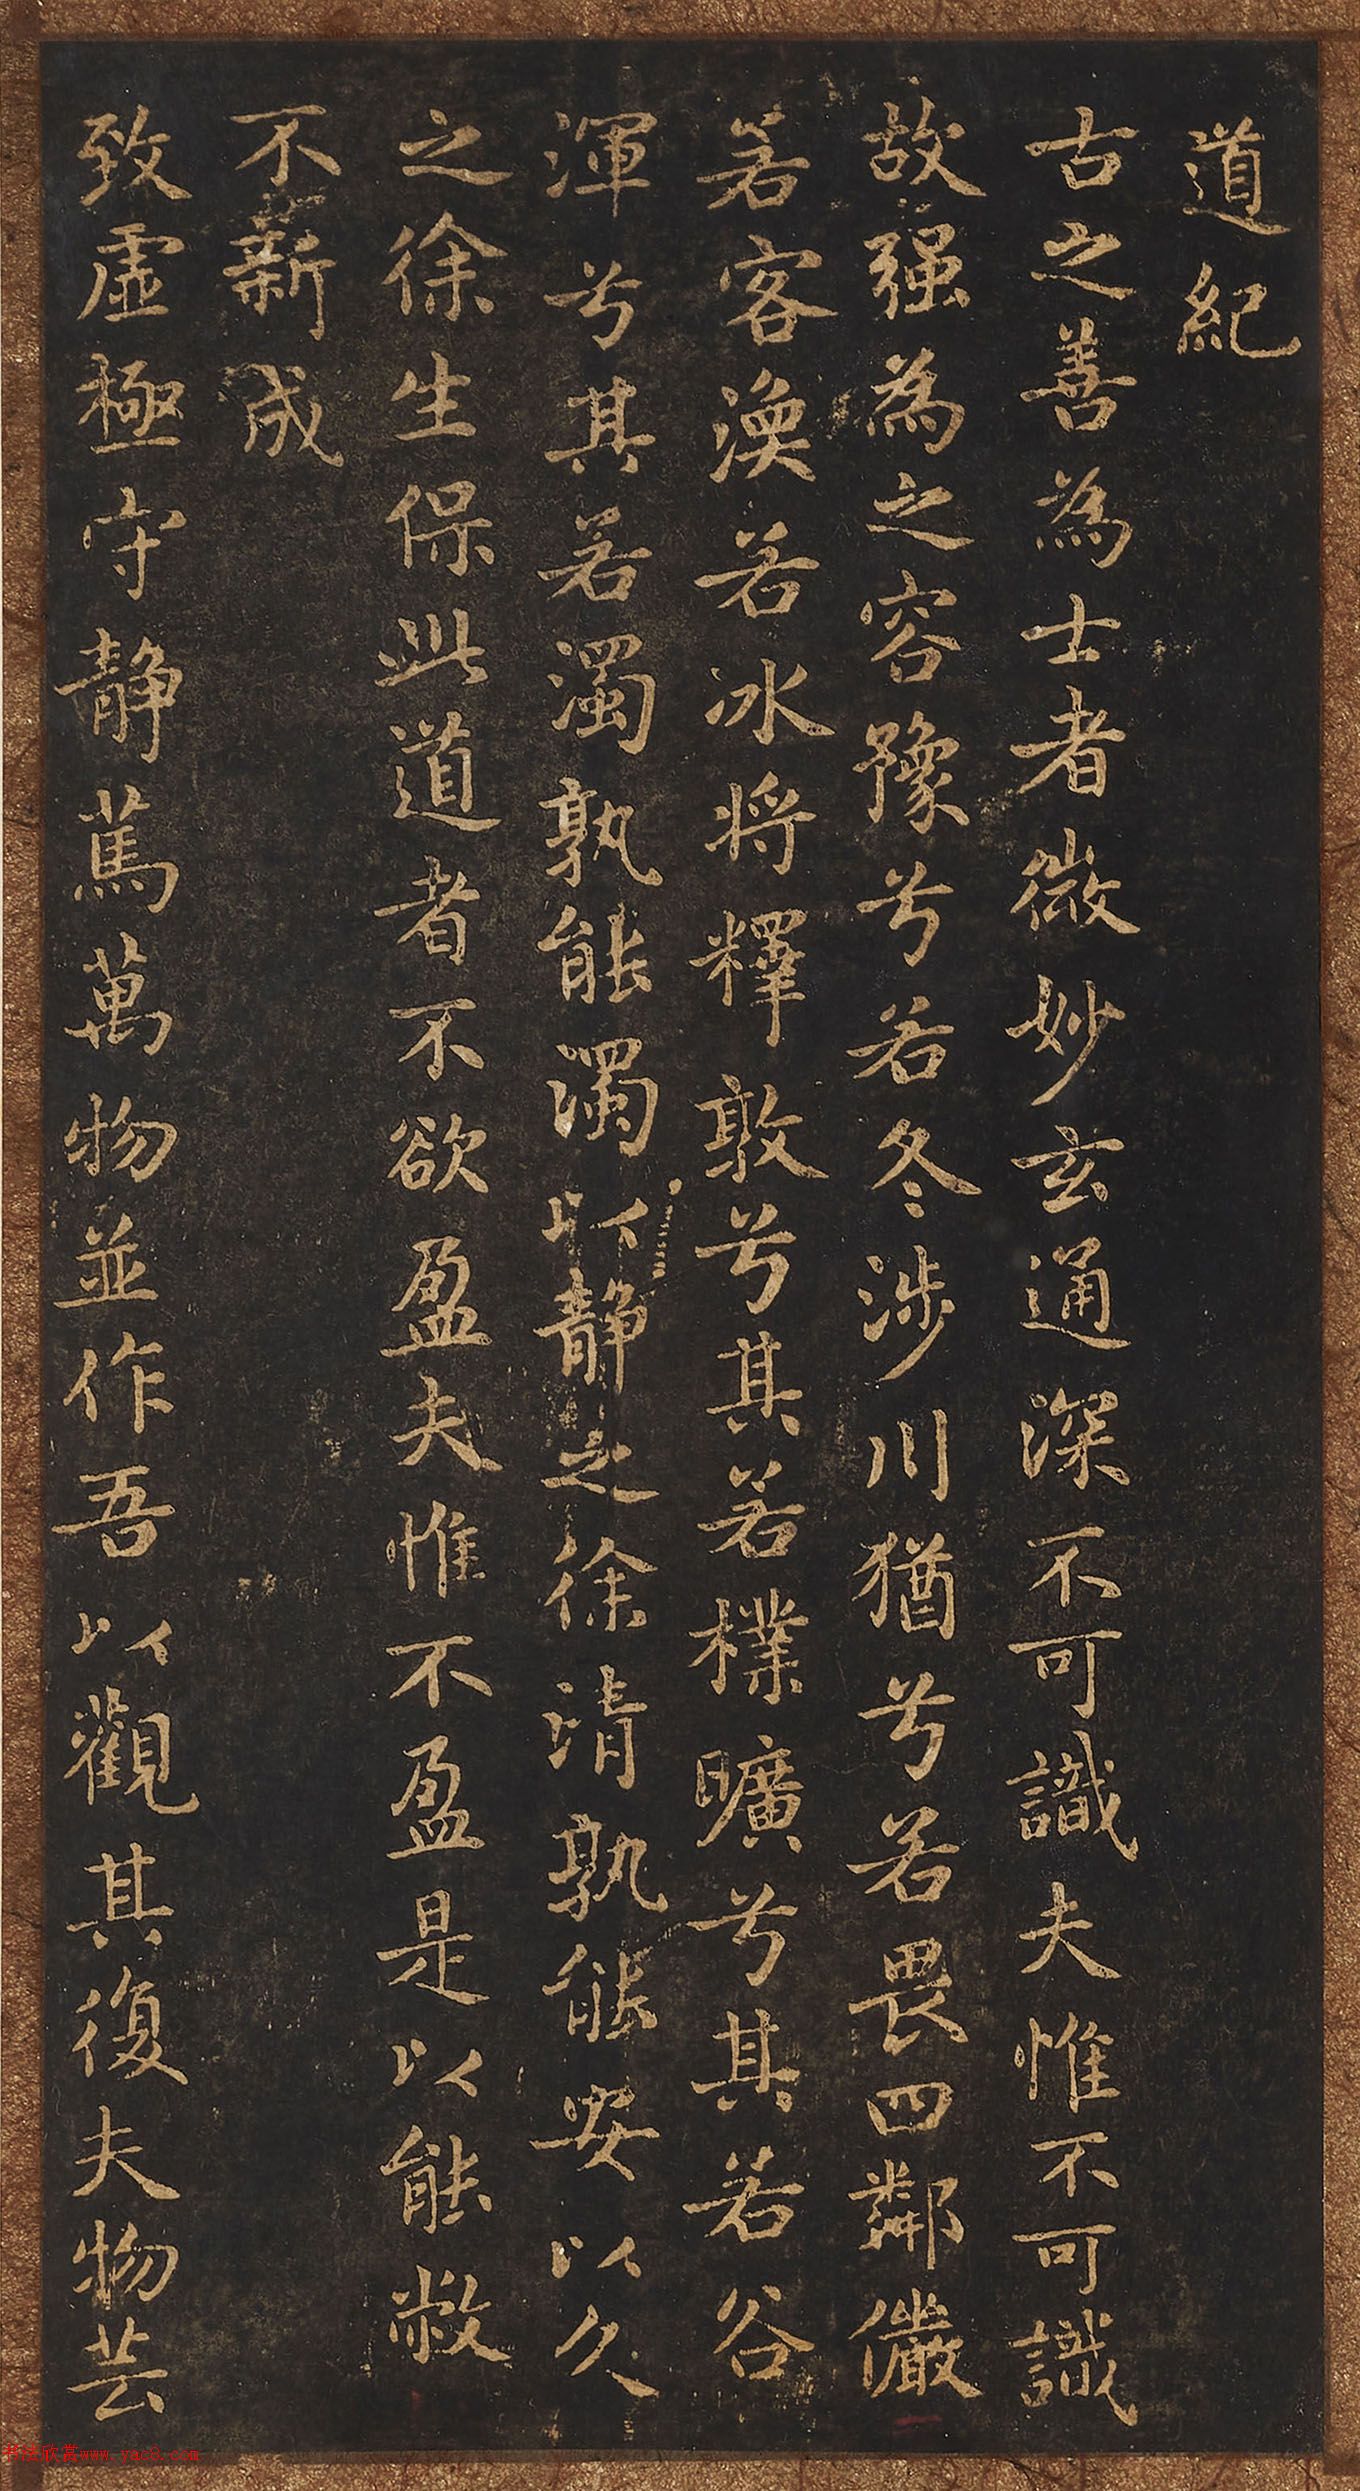 道紀
古之善為士者微妙玄通深不可識夫惟不可識
故强為之容豫兮若冬涉川猶兮若畏四鄰儼
若客渙若冰將釋敦兮其若樸曠兮其若谷
渾兮其若濁孰能濁以靜之徐清孰能安以久
之徐生保此道者不欲盈夫惟不盈是以能敝
不新成
致虛極守靜篤萬物並作吾以觀其復夫物芸
书法欣赏www.yac8.com